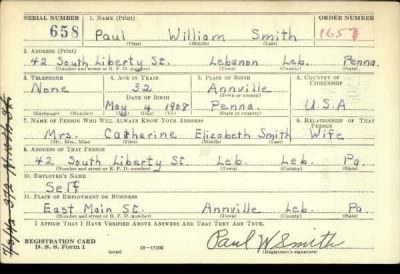 SERIAL NUMBER 1. NAME (Print) ORDER NUMBER
658 Paul William Smith 1657
(First) (Middle) (Last)
2. ADDRESS (Print)
42 South Liberty St. Lebanon Leb. Penna.
(Number and street or R. F. D. number) (Town) (County) (State)
3. TELEPHONE 4. AGE IN YEARS 5. PLACE OF BIRTH 6. COUNTRY OF CITIZENSHIP
None 32 Annville
DATE OF BIRTH (Town or county)
May 4 1908 Penna. U.S.A
(Exchange) (No.) (Mo.) (Day) (Yr.) (State or country)
7. NAME OF PERSON WHO WILL ALWAYS KNOW YOUR ADDRESS 8. RELATIONSHIP OF THAT PERSON
Mrs. Catherine Elizabeth Smith Wife
(Mr., Mrs., Miss) (First) (Middle) (Last)
9. ADDRESS OF THAT PERSON
42 South Liberty St. Leb. Leb. Pa.
(Number and street or R. F. D. number) (Town) (County) (State)
10. EMPLOYER'S NAME
Self
11. PLACE OF EMPLOYMENT OR BUSINESS
East Main St. Annville Leb. Pa.
(Number and street or R. F. D. number) (Town) (County) (State)
I AFFIRM THAT I HAVE VERIFIED ABOVE ANSWERS AND THAT THEY ARE TRUE.
REGISTRATION CARD
D. S. S. Form 1 (over) 16—17105 Paul W. Smith
(Registrant's signature)